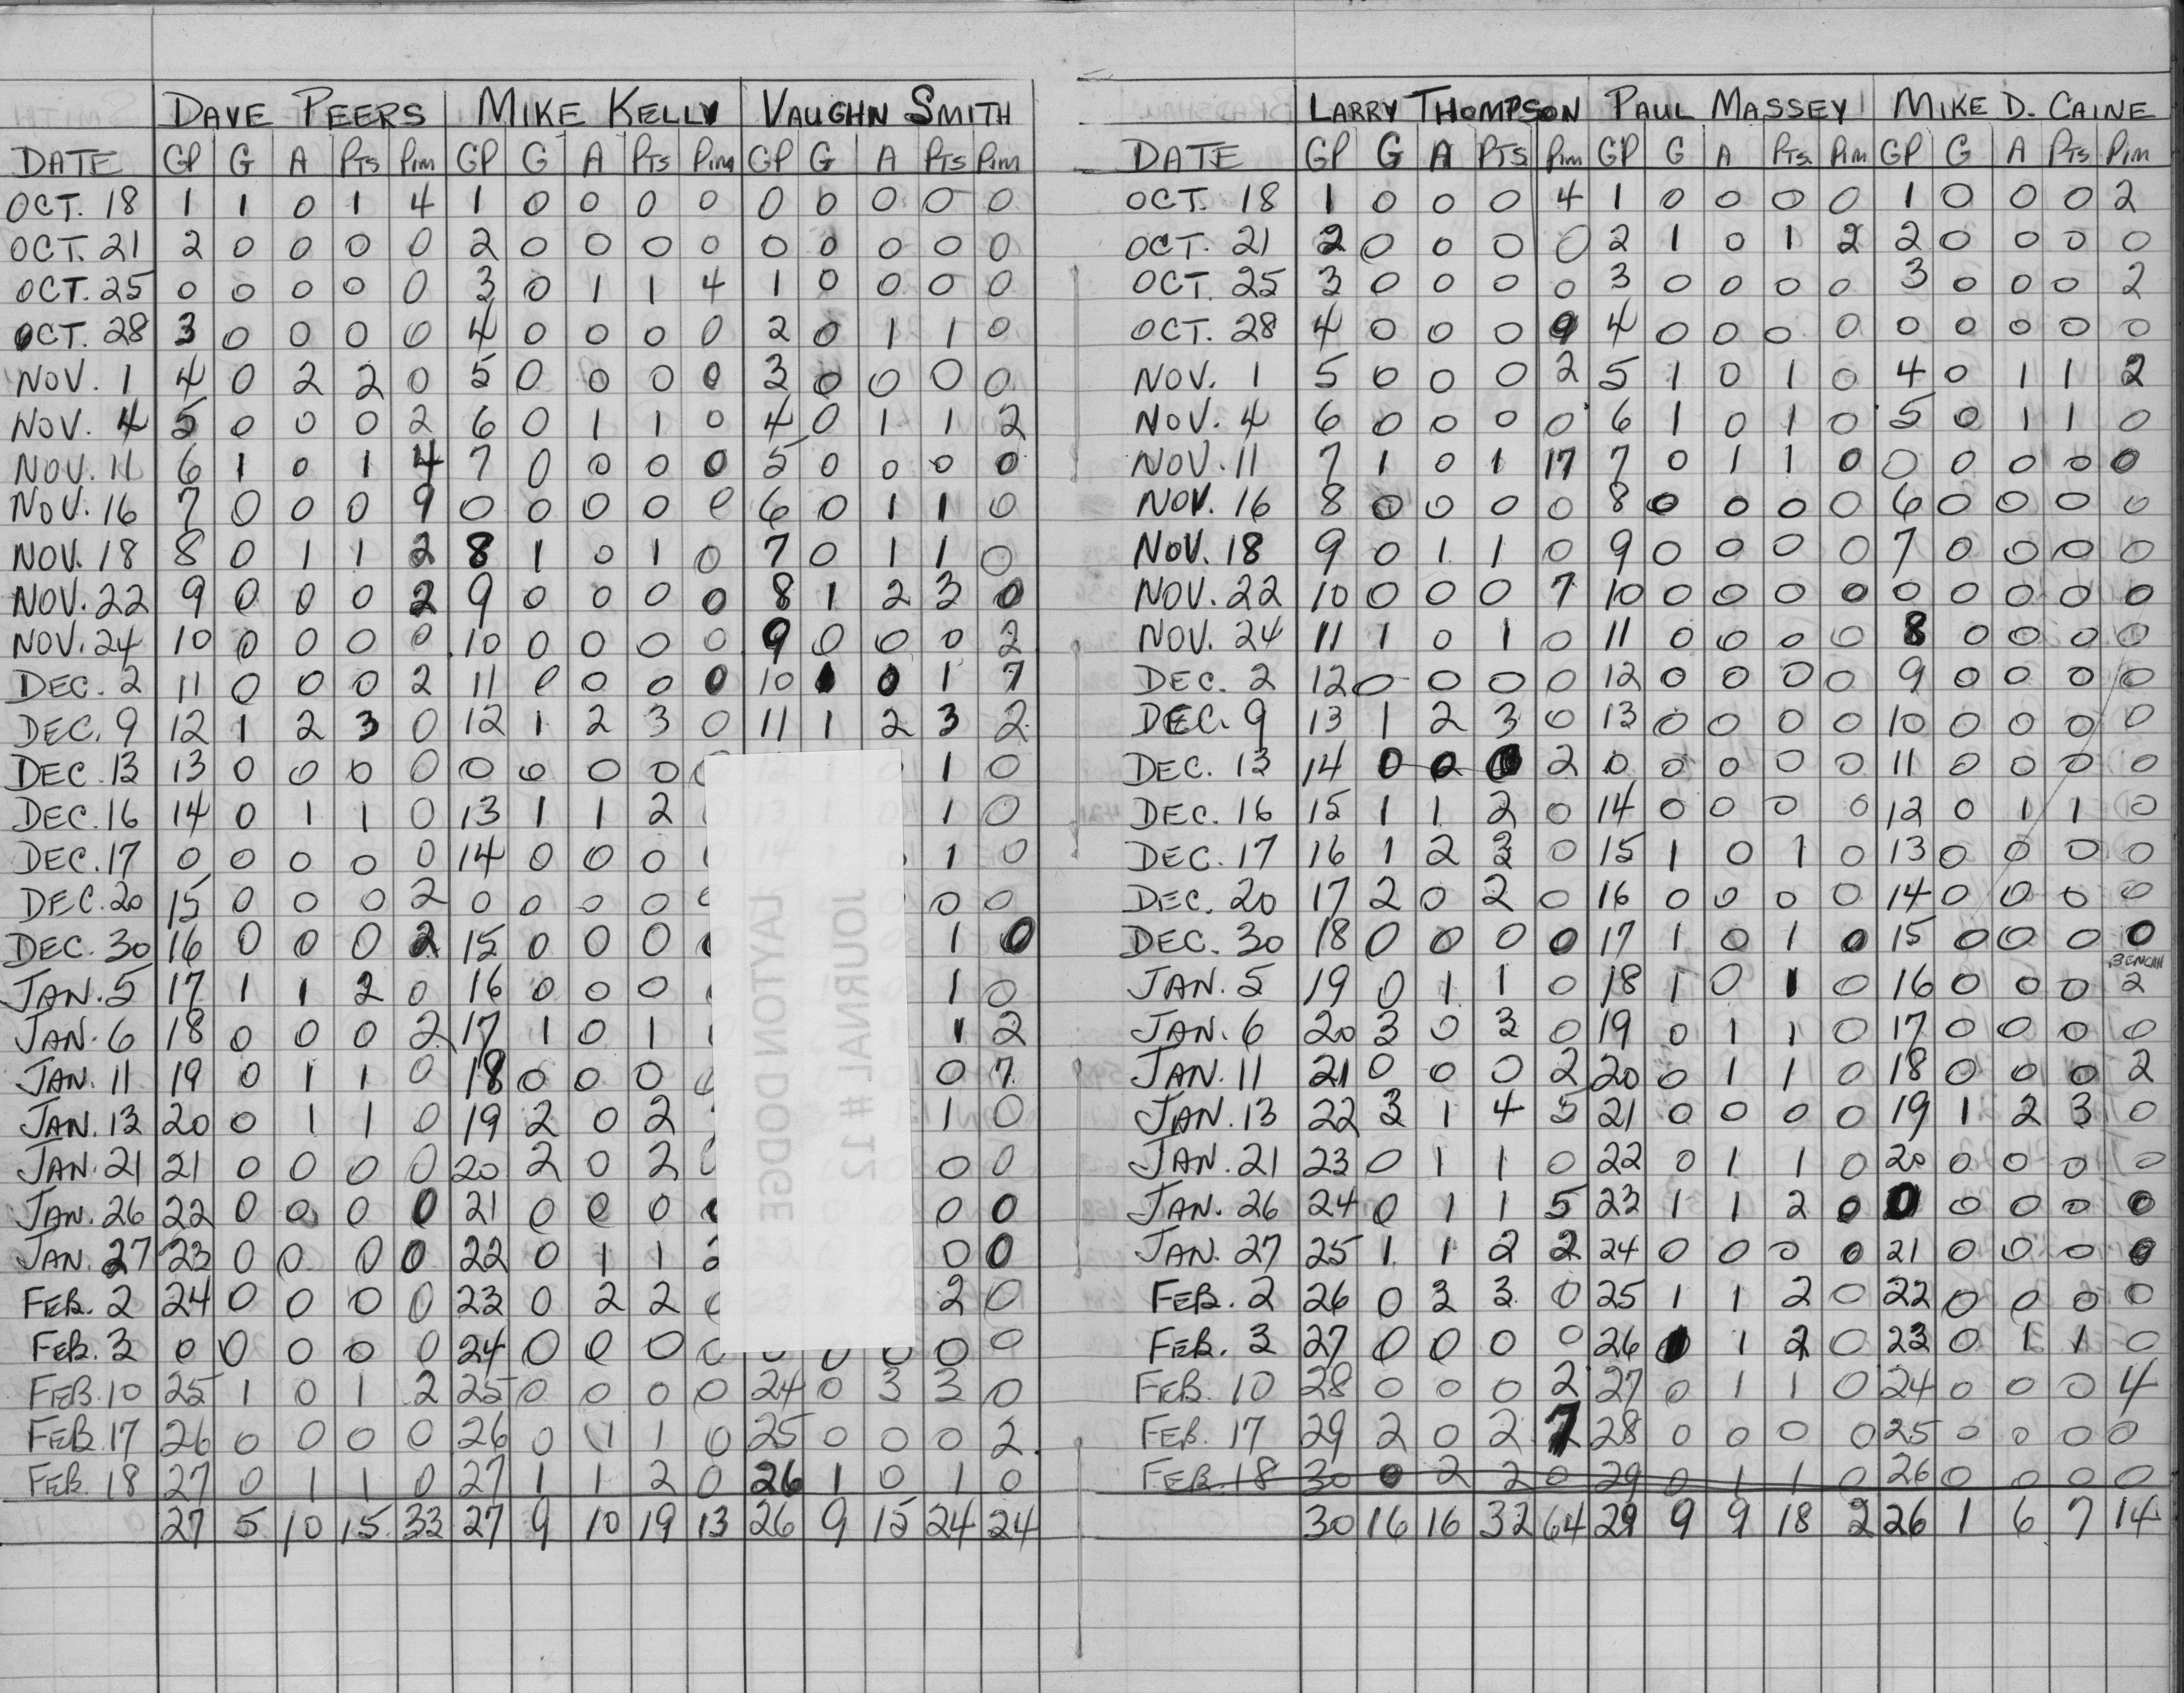 DAVE PEERS MIKE KELLY VAUGHN SMITH
DATE GP G A PTS PIM GP G A PTS PIM GP G A PTS PIM
OCT. 18 1 1 0 1 4 1 0 0 0 0 0 0 0 0 0
OCT. 21 2 0 0 0 0 2 0 0 0 0 0 0 0 0 0
OCT. 25 0 0 0 0 0 3 0 1 1 4 1 0 0 0 0
OCT. 28 3 0 0 0 0 4 0 0 0 0 2 0 1 1 0
NOV. 1 4 0 2 2 0 5 0 0 0 0 3 0 0 0 0
NOV. 4 5 0 0 0 2 6 0 1 1 0 4 0 1 1 2
NOV. 11 6 1 0 1 4 7 0 0 0 0 5 0 0 0 0
NOV. 16 7 0 0 0 9 0 0 0 0 0 6 0 1 1 0
NOV. 18 8 0 1 1 2 8 1 0 1 0 7 0 1 1 0
NOV. 22 9 0 0 0 2 9 0 0 0 0 8 1 2 3 0
NOV. 24 10 0 0 0 0 10 0 0 0 0 9 0 0 0 2
DEC. 2 11 0 0 0 2 11 0 0 0 0 10 1 0 1 7
DEC. 9 12 1 2 3 0 12 1 2 3 0 11 1 2 3 2
DEC. 13 13 0 0 0 0 0 0 0 0 1 0
DEC. 16 14 0 1 1 0 13 1 1 2 1 0
DEC. 17 0 0 0 0 0 14 0 0 0 1 0
DEC. 20 15 0 0 0 2 0 0 0 0 0 0
DEC. 30 16 0 0 0 2 15 0 0 0 1 0
JAN. 5 17 1 1 2 0 16 0 0 0 1 0
JAN. 6 18 0 0 0 2 17 1 0 1 1 2
JAN. 11 19 0 1 1 0 18 0 0 0 0 7
JAN. 13 20 0 1 1 0 19 2 0 2 1 0
JAN. 21 21 0 0 0 0 20 2 0 2 0 0
JAN. 26 22 0 0 0 0 21 0 0 0 0 0
JAN. 27 23 0 0 0 0 22 0 1 1 2 0 0
FEB. 2 24 0 0 0 0 23 0 2 2 2 0
FEB. 3 0 0 0 0 0 24 0 0 0 0 0 0 0 0
FEB. 10 25 1 0 1 2 25 0 0 0 0 24 0 3 3 0
FEB. 17 26 0 0 0 0 26 0 1 1 0 25 0 0 0 2
FEB. 18 27 0 1 1 0 27 1 1 2 0 26 1 0 1 0
27 5 10 15 33 27 9 10 19 13 26 9 15 24 24
LAYTON DODGE
JOURNAL # 12
LARRY THOMPSON PAUL MASSEY MIKE D. CAINE
DATE GP G A PTS PIM GP G A PTS. PIM GP G A PTS PIM
OCT. 18 1 0 0 0 4 1 0 0 0 0 1 0 0 0 2
OCT. 21 2 0 0 0 0 2 1 0 1 2 2 0 0 0 0
OCT. 25 3 0 0 0 0 3 0 0 0 0 3 0 0 0 2
OCT. 28 4 0 0 0 9 4 0 0 0 0 0 0 0 0 0
NOV. 1 5 0 0 0 2 5 1 0 1 0 4 0 1 1 2
NOV. 4 6 0 0 0 0 6 1 0 1 0 5 0 1 1 0
NOV. 11 7 1 0 1 17 7 0 1 1 0 0 0 0 0 0
NOV. 16 8 0 0 0 0 8 0 0 0 0 6 0 0 0 0
NOV. 18 9 0 1 1 0 9 0 0 0 0 7 0 0 0 0
NOV. 22 10 0 0 0 7 10 0 0 0 0 0 0 0 0 0
NOV. 24 11 1 0 1 0 11 0 0 0 0 8 0 0 0 0
DEC. 2 12 0 0 0 0 12 0 0 0 0 9 0 0 0 0
DEC. 9 13 1 2 3 0 13 0 0 0 0 10 0 0 0 0
DEC. 13 14 0 0 0 2 0 0 0 0 0 11 0 0 0 0
DEC. 16 15 1 1 2 0 14 0 0 0 0 12 0 1 1 0
DEC. 17 16 1 2 3 0 15 1 0 1 0 13 0 0 0 0
DEC. 20 17 2 0 2 0 16 0 0 0 0 14 0 0 0 0
DEC. 30 18 0 0 0 0 17 1 0 1 0 15 0 0 0 0
JAN. 5 19 0 1 1 0 18 1 0 1 0 16 0 0 0 2
JAN. 6 20 3 0 3 0 19 0 1 1 0 17 0 0 0 0
JAN. 11 21 0 0 0 2 20 0 1 1 0 18 0 0 0 2
JAN. 13 22 3 1 4 5 21 0 0 0 0 19 1 2 3 0
JAN. 21 23 0 1 1 0 22 0 1 1 0 20 0 0 0 0
JAN. 26 24 0 1 1 5 23 1 1 2 0 0 0 0 0 0
JAN. 27 25 1 1 2 2 24 0 0 0 0 21 0 0 0 0
FEB. 2 26 0 3 3 0 25 1 1 2 0 22 0 0 0 0
FEB. 3 27 0 0 0 0 26 1 1 2 0 23 0 1 1 0
FEB. 10 28 0 0 0 2 27 0 1 1 0 24 0 0 0 4
FEB. 17 29 2 0 2 7 28 0 0 0 0 25 0 0 0 0
FEB. 18 30 0 2 2 0 29 0 1 1 0 26 0 0 0 0
30 16 16 32 64 29 9 9 18 2 26 1 6 7 14